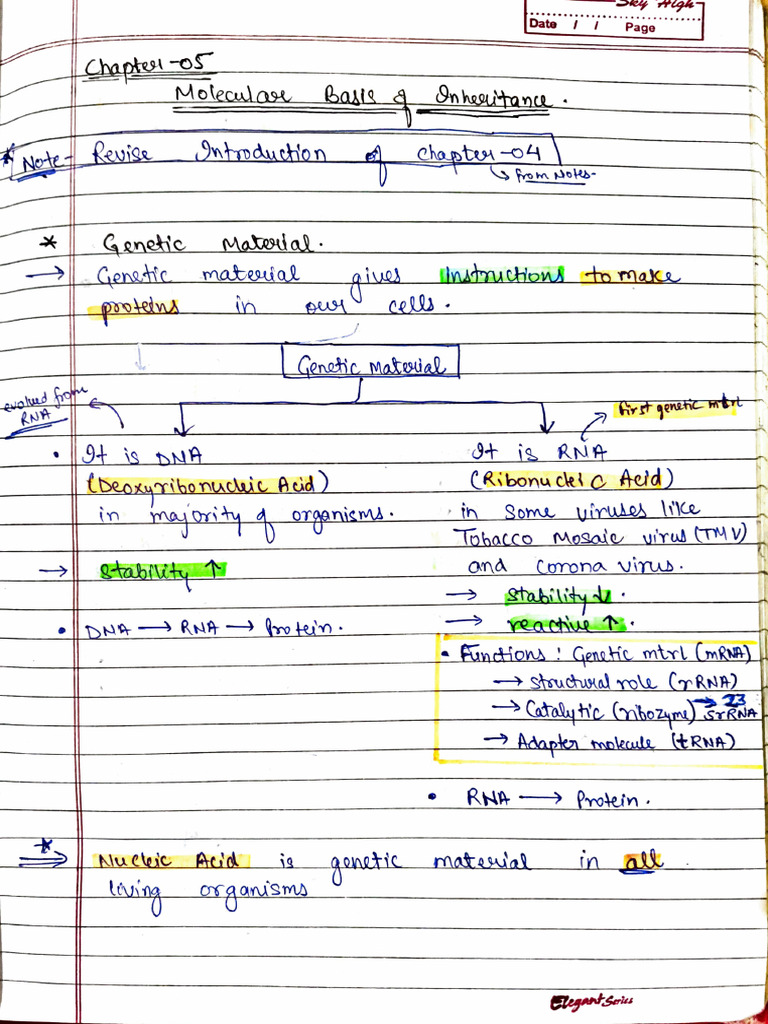 Sky High
Date / / Page
Chapter-05
Molecular Basis of Inheritance.
* Note- Revise Introduction of Chapter-04
↳ From Notes-
* Genetic Material.
→ Genetic material gives instructions to make
proteins in our cells.
Genetic Material
evolved from
RNA
first genetic mtrl
• It is DNA
(Deoxyribonucleic Acid)
in majority of organisms.
→ stability ↑
• DNA → RNA → Protein.
It is RNA
(Ribonucleic Acid)
in some viruses like
Tobacco Mosaic virus (TMV)
and corona virus.
→ stability ↓.
→ reactive ↑.
• Functions : Genetic mtrl (mRNA)
→ structural role (rRNA)
→ Catalytic (ribozyme) → 23
SrRNA
→ Adapter molecule (tRNA)
• RNA → Protein.
* ⇒ Nucleic Acid is genetic material in all
living organisms
Elegant Series